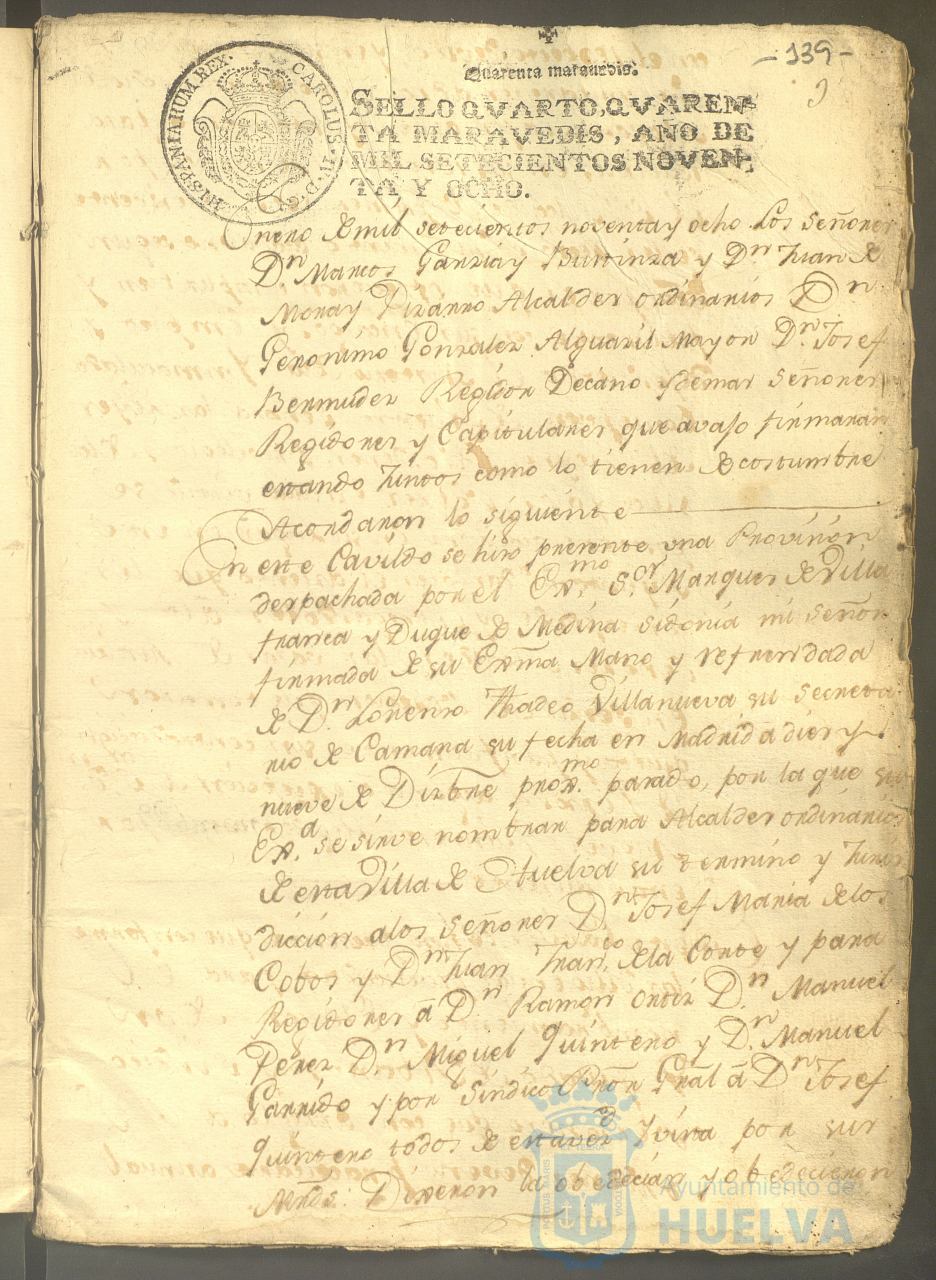 -139-
Quarenta maravedis.
SELLO QVARTO, QVAREN-
TA MARAVEDIS, AÑO DE
MIL SETECIENTOS NOVEN-
TA Y OCHO.
HISPANIARUM REX. CAROLUS IV D. G.
Enero de mil setecientos noventa y ocho. Los Señores
Dn. Marcos Garzia y Dn. Juan de
Mora y Pizarro Alcaldes ordinarios Dn.
Geronimo Gonzalez Alguazil Mayor Dn. Josef
Bermudez Regidor Decano y demas Señores
Regidores y Capitulares que avajo firmaran
estando Juntos como lo tienen de costumbre
Acordaron lo siguiente
En este Cavildo se hizo presente una Provision
despachada por el Exmo. Sor. Marques de Villa
franca y Duque de Medina Sidonia mi Señor
firmada de su Exma. Mano y refrendada
de Dn. Lorenzo Thadeo Villanueva su Secreta
rio de Camara su fecha en Madrid a diez y
nueve de Dizbre proxmo. pasado, por la que su
Exa. se sirve nombrar para Alcaldes ordinarios
de esta Villa de Huelva su termino y Juris
diccion a los Señores Dn. Josef Maria de los
Cobos y Dn. Juan Franco. de la Corte y para
Regidores á Dn. Ramon Ortiz Dn. Manuel
Perez Dn. Miguel Quintero y Dn. Manuel
Garrido y por Sindico Pror. Gral á Dn. Josef
Quintero todos de esta vezd. y vista por sus
Mrds. Dixeron la obedecian y obedecieron
Ayuntamiento de
HUELVA